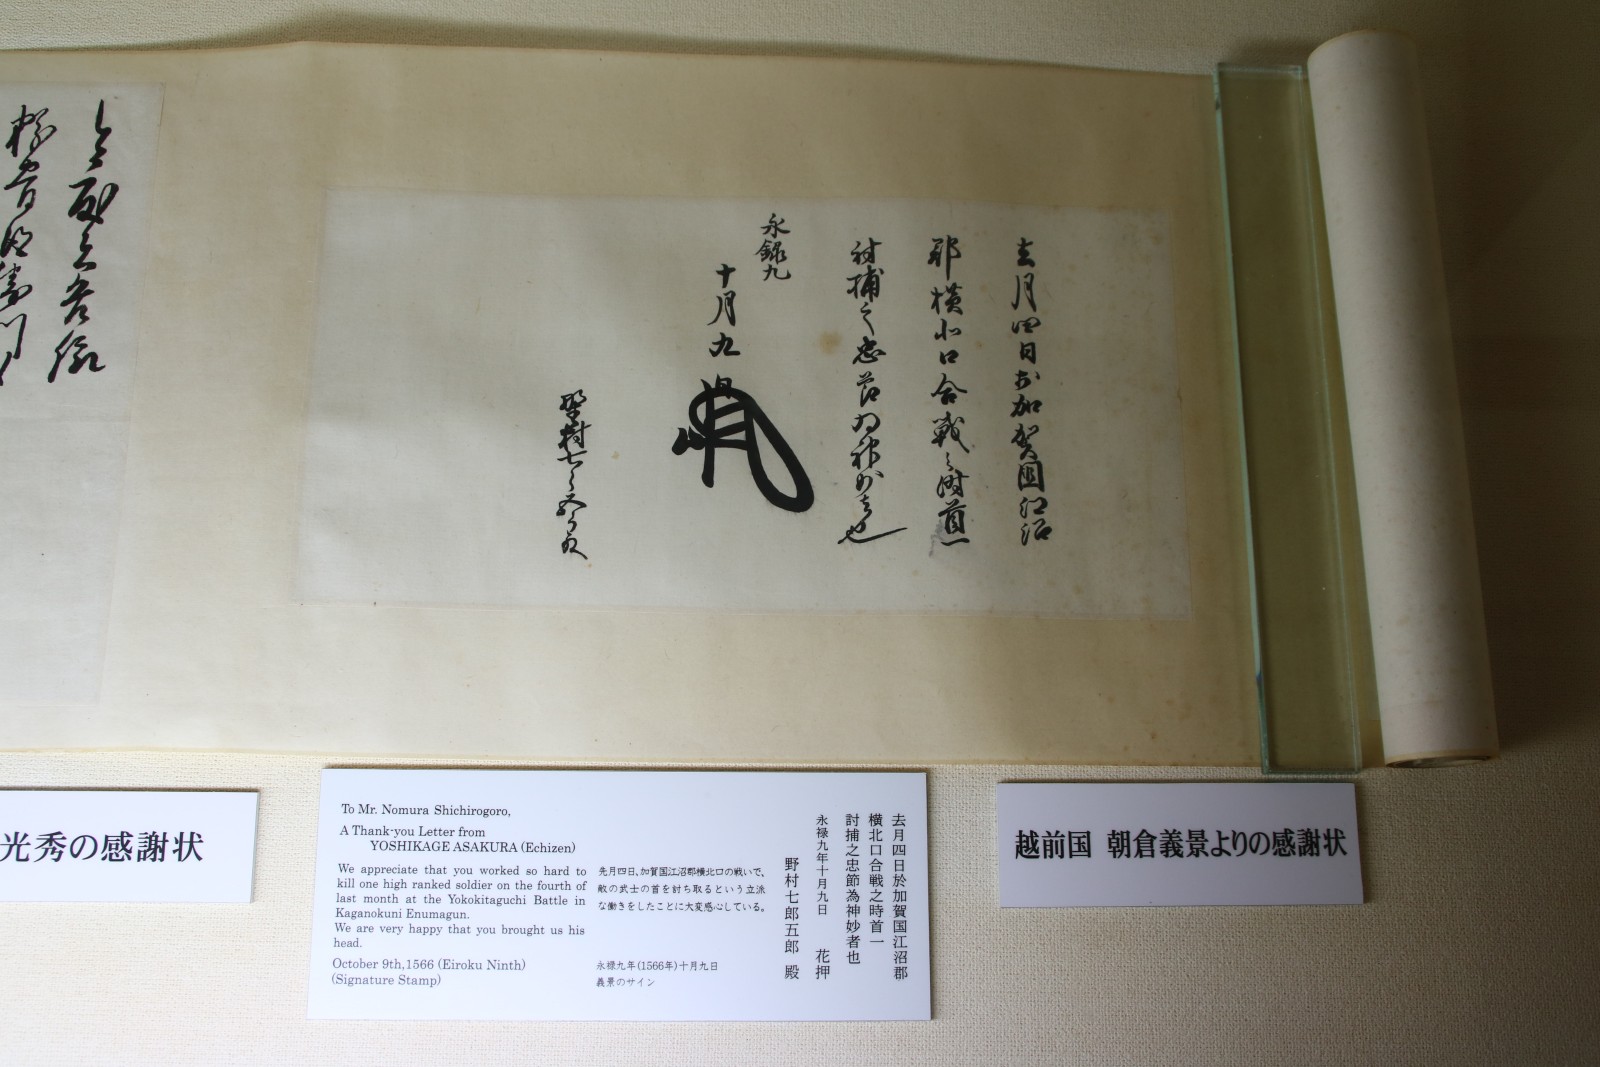 去月四日於加賀国江沼
郡横北口合戦之時首一
討捕之忠節為神妙者也
永録九
十月九
野村七郎五郎殿
光秀の感謝状
To Mr. Nomura Shichirogoro,
A Thank-you Letter from
YOSHIKAGE ASAKURA (Echizen)
We appreciate that you worked so hard to
kill one high ranked soldier on the fourth of
last month at the Yokokitaguchi Battle in
Kaganokuni Enumagun.
We are very happy that you brought us his
head.
October 9th,1566 (Eiroku Ninth)
(Signature Stamp)
先月四日、加賀国江沼郡横北口の戦いで、
敵の武士の首を討ち取るという立派
な働きをしたことに大変感心している。
永禄九年(1566年)十月九日
義景のサイン
去月四日於加賀国江沼郡
横北口合戦之時首一
討捕之忠節為神妙者也
永禄九年十月九日 花押
野村七郎五郎 殿
越前国 朝倉義景よりの感謝状